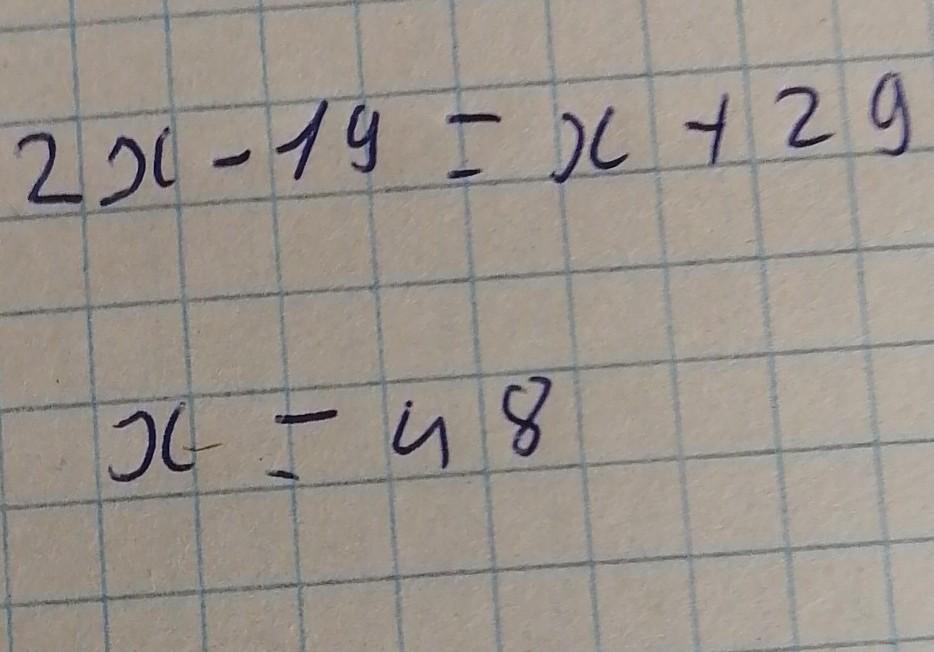 2x - 19 = x + 29
x = 48